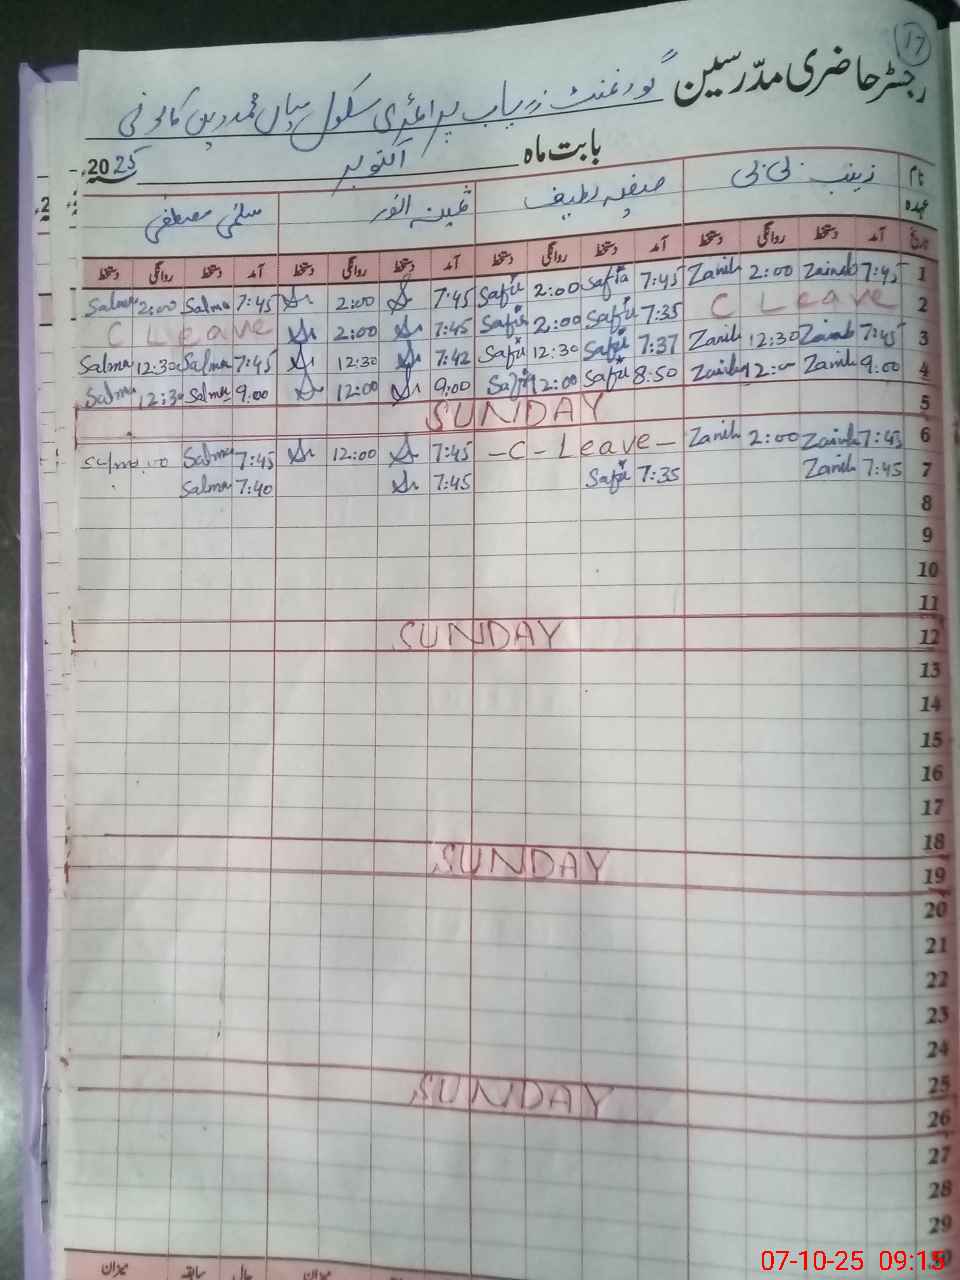 17
رجسٹر حاضری مدرسین گورنمنٹ زریاب پرائمری سکول میاں محمد دین کالونی
بابت ماہ اکتوبر 2025ء
نام زینب بی بی صفیہ لطیف ثمینہ انور سلمی مصطفی
عہدہ
تاریخ آمد دستخط روانگی دستخط آمد دستخط روانگی دستخط آمد دستخط روانگی دستخط آمد دستخط روانگی دستخط
1 7:45 Zainab 2:00 Zainab 7:45 Safia 2:00 Safia 7:45 2:00 7:45 Salma 2:00 Salma
2 C Leave 7:35 Safia 2:00 Safia 7:45 2:00 C Leave
3 7:45 Zainab 12:30 Zainab 7:37 Safia 12:30 Safia 7:42 12:30 7:45 Salma 12:30 Salma
4 9:00 Zainab 2:00 Zainab 8:50 Safia 12:00 Safia 9:00 12:00 9:00 Salma 12:30 Salma
5 SUNDAY
6 7:45 Zainab 2:00 Zainab - C - Leave - 7:45 12:00 7:45 Salma Salma
7 7:45 Zainab 7:35 Safia 7:45 7:40 Salma
8
9
10
11
12 SUNDAY
13
14
15
16
17
18
19 SUNDAY
20
21
22
23
24
25
26 SUNDAY
27
28
29
30
میزان حال سابقہ میزان
07-10-25 09:15